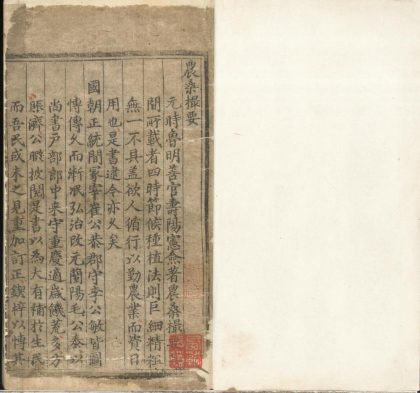 農桑撮要
元時魯明善官壽陽憲僉著農桑撮要
間所載者四時節候種植法則巨細精粗
無一不具盖欲人循行以勤農業而資日
用也是書逮今亦久矣
國朝正統間冢宰崔公恭郡守李公敏皆圖
博傳久而漸泯弘治改元蘭陽毛公泰以
尚書户部郎中来守重慶適歲饑荒多方
賑濟公暇披閱是書以為大有補於生民
而吾民或未之見重加訂正鋟梓以博其